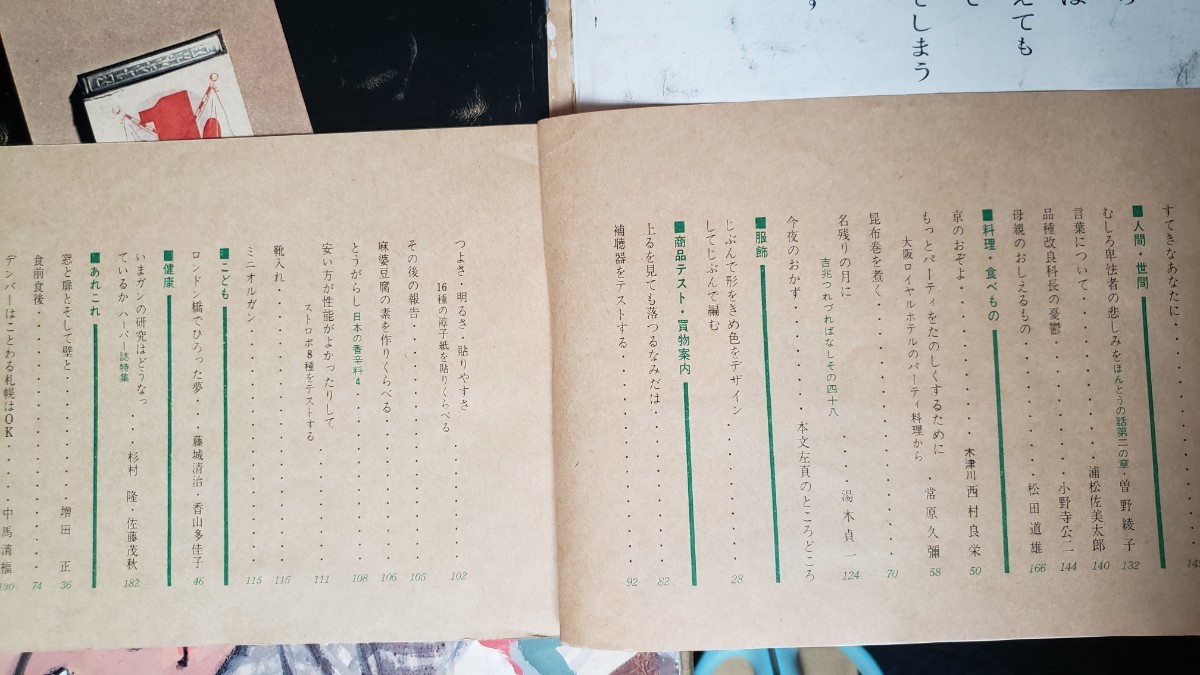 すてきなあなたに
■人間・世間
むしろ卑怯者の悲しみを ほんとうの話第二の章・曽野綾子 132
言葉について 浦松佐美太郎 140
品種改良科長の憂鬱 小野寺公二 144
母親のおしえるもの 松田道雄 166
■料理・食べもの
京のおぞよ 木津川 西村良栄 50
もっとパーティをたのしくするために 常原久彌 58
大阪ロイヤルホテルのパーティ料理から
昆布巻を煮く 70
名残りの月に 湯木貞一 124
吉兆つれづればなしその四十八
今夜のおかず 本文左頁のところどころ
■服飾
じぶんで形をきめ色をデザイン
してじぶんで編む 28
■商品テスト・買物案内
上るを見ても落つるなみだは 82
補聴器をテストする 92
つよさ・明るさ・貼りやすさ 102
16種の障子紙を貼りくらべる
その後の報告 105
麻婆豆腐の素を作りくらべる 106
とうがらし 日本の香辛料4 108
安い方が性能がよかったりして 111
ストロボ8種をテストする
靴入れ 115
ミニオルガン 115
■こども
ロンドン橋でひろった夢 藤城清治・香山多佳子 46
■健康
いまガンの研究はどうなっ
ているか ハーパー誌特集 杉村 隆・佐藤茂秋 182
■あれこれ
窓と扉とそして壁と 増田 正 36
食前食後 74
デンバーはことわる札幌はOK 中馬清福 130
えても
てしまう